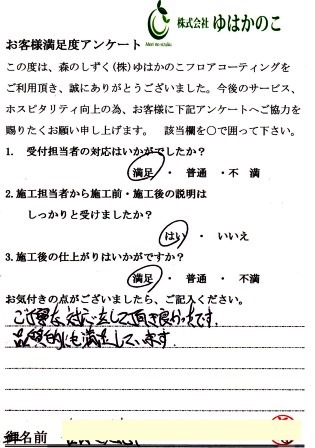 株式会社 ゆはかのこ
お客様満足度アンケート
この度は、森のしずく(株)ゆはかのこフロアコーティングを
ご利用頂き、誠にありがとうございました。今後のサービス、
ホスピタリティ向上の為、お客様に下記アンケートへご協力を
賜りたくお願い申し上げます。 該当欄を〇で囲って下さい。
1. 受付担当者の対応はいかがでしたか?
満足 ・ 普通 ・ 不 満
2. 施工担当者から施工前・施工後の説明は
しっかりと受けましたか?
はい ・ いいえ
3. 施工後の仕上がりはいかがですか?
満足 ・ 普通 ・ 不満
お気付きの点がございましたら、ご記入ください。
ご丁寧な対応をして頂き良かったです。
品質的にも満足しています。
御名前